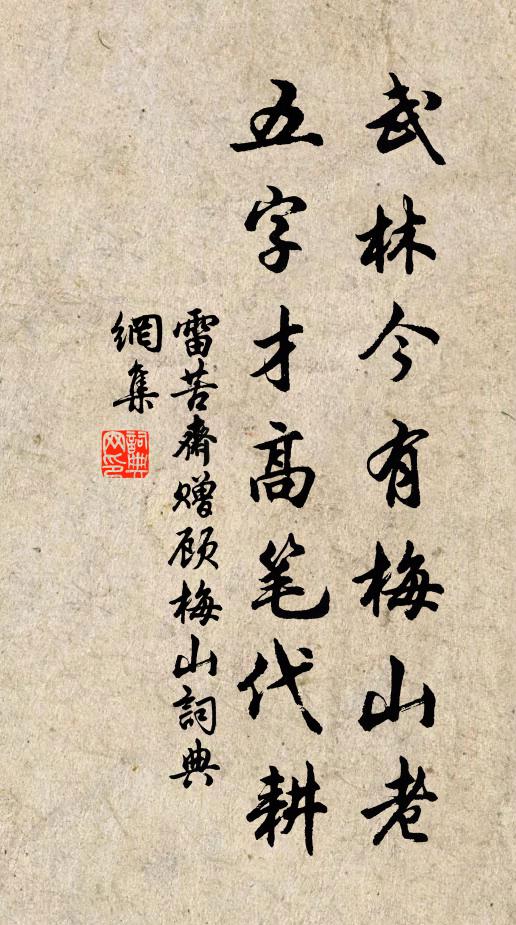 武林今有梅山老
五字才高笔代耕
雷苦斋赠顾梅山詞典
網集
詞典網印